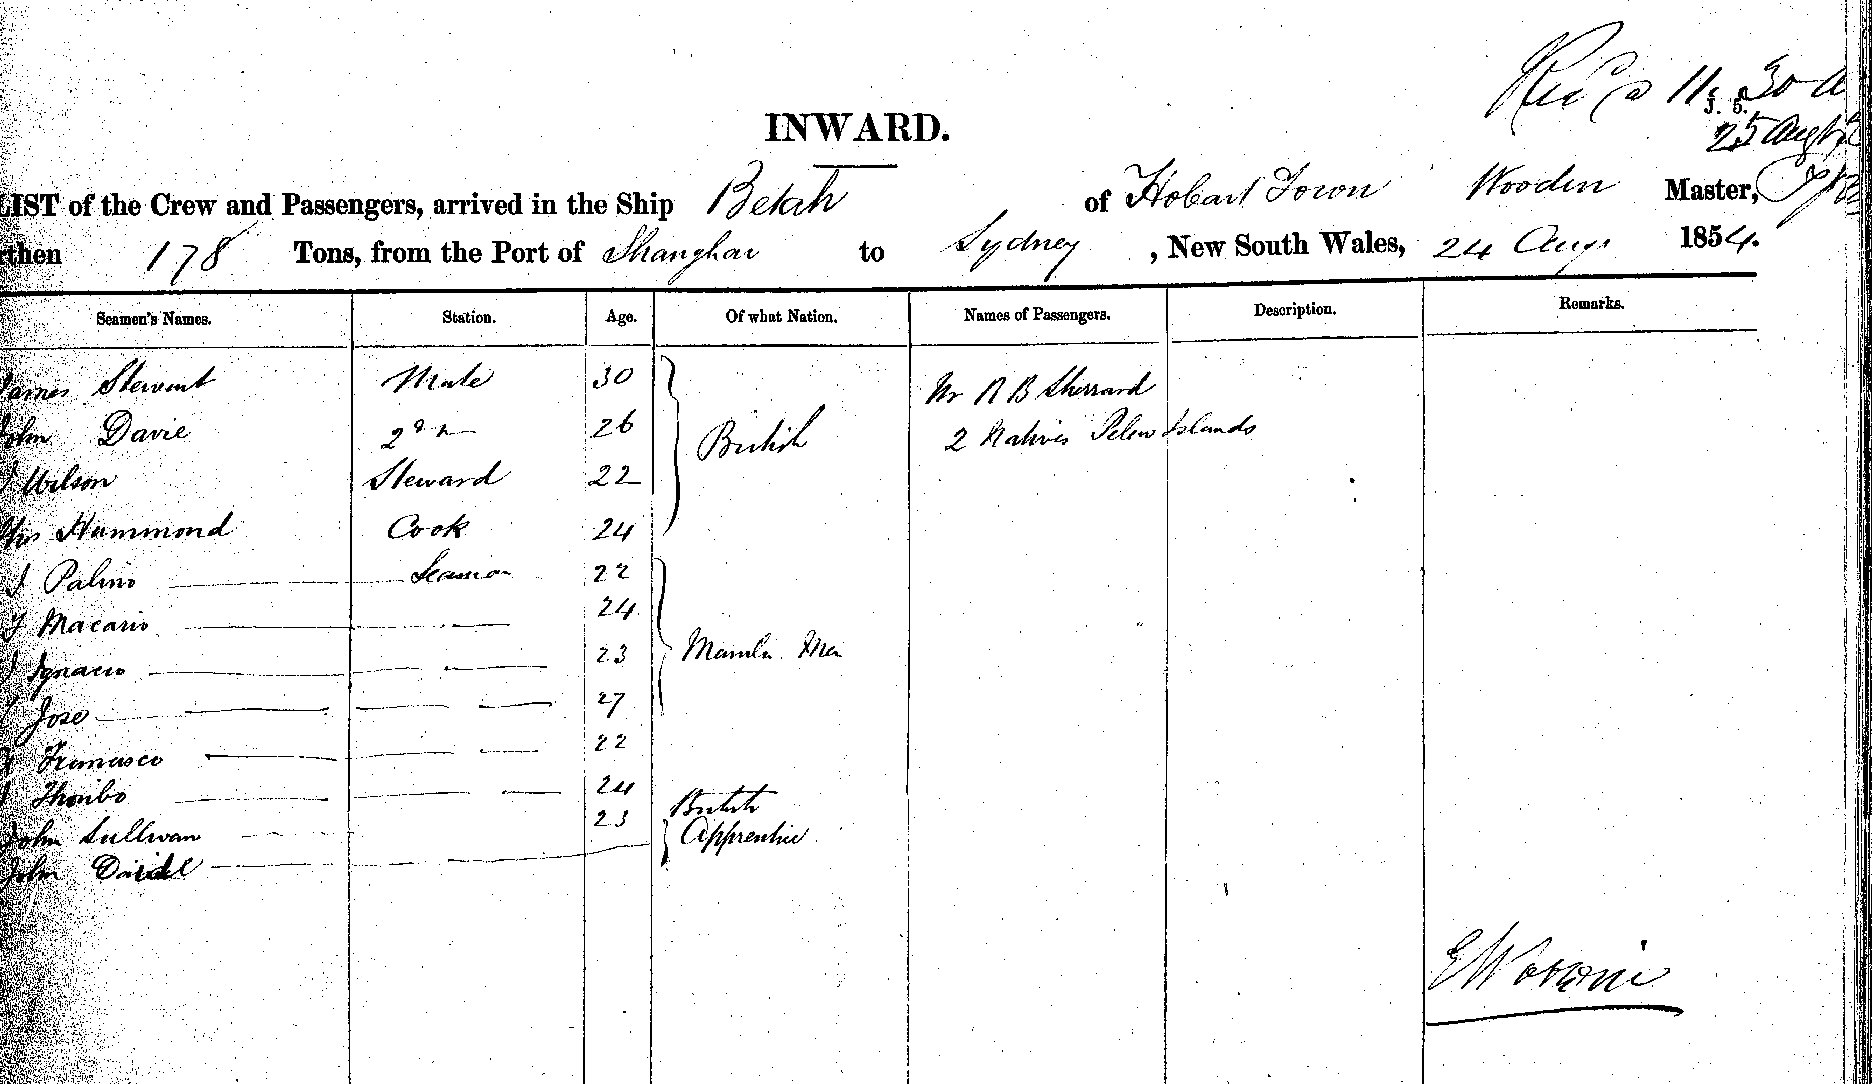 11. 30 A
J. 5.
25 Augt
INWARD.
LIST of the Crew and Passengers, arrived in the Ship Betah of Hobart Town Wooden Master,
rthen 178 Tons, from the Port of Shanghai to Sydney , New South Wales, 24 Aug. 1854.
Seamen's Names. Station. Age. Of what Nation. Names of Passengers. Description. Remarks.
James Stewart Mate 30 Mr R B Sherrard
John Davie 2nd 26 British 2 Natives Pelew Islands
J Wilson Steward 22
Hammond Cook 24
J Palino Seaman 22
J Macario 24
J Ignacio 23 Manila Men
J Jose 27
Francisco 22
24 British
John Sullivan 23 Apprentice
John